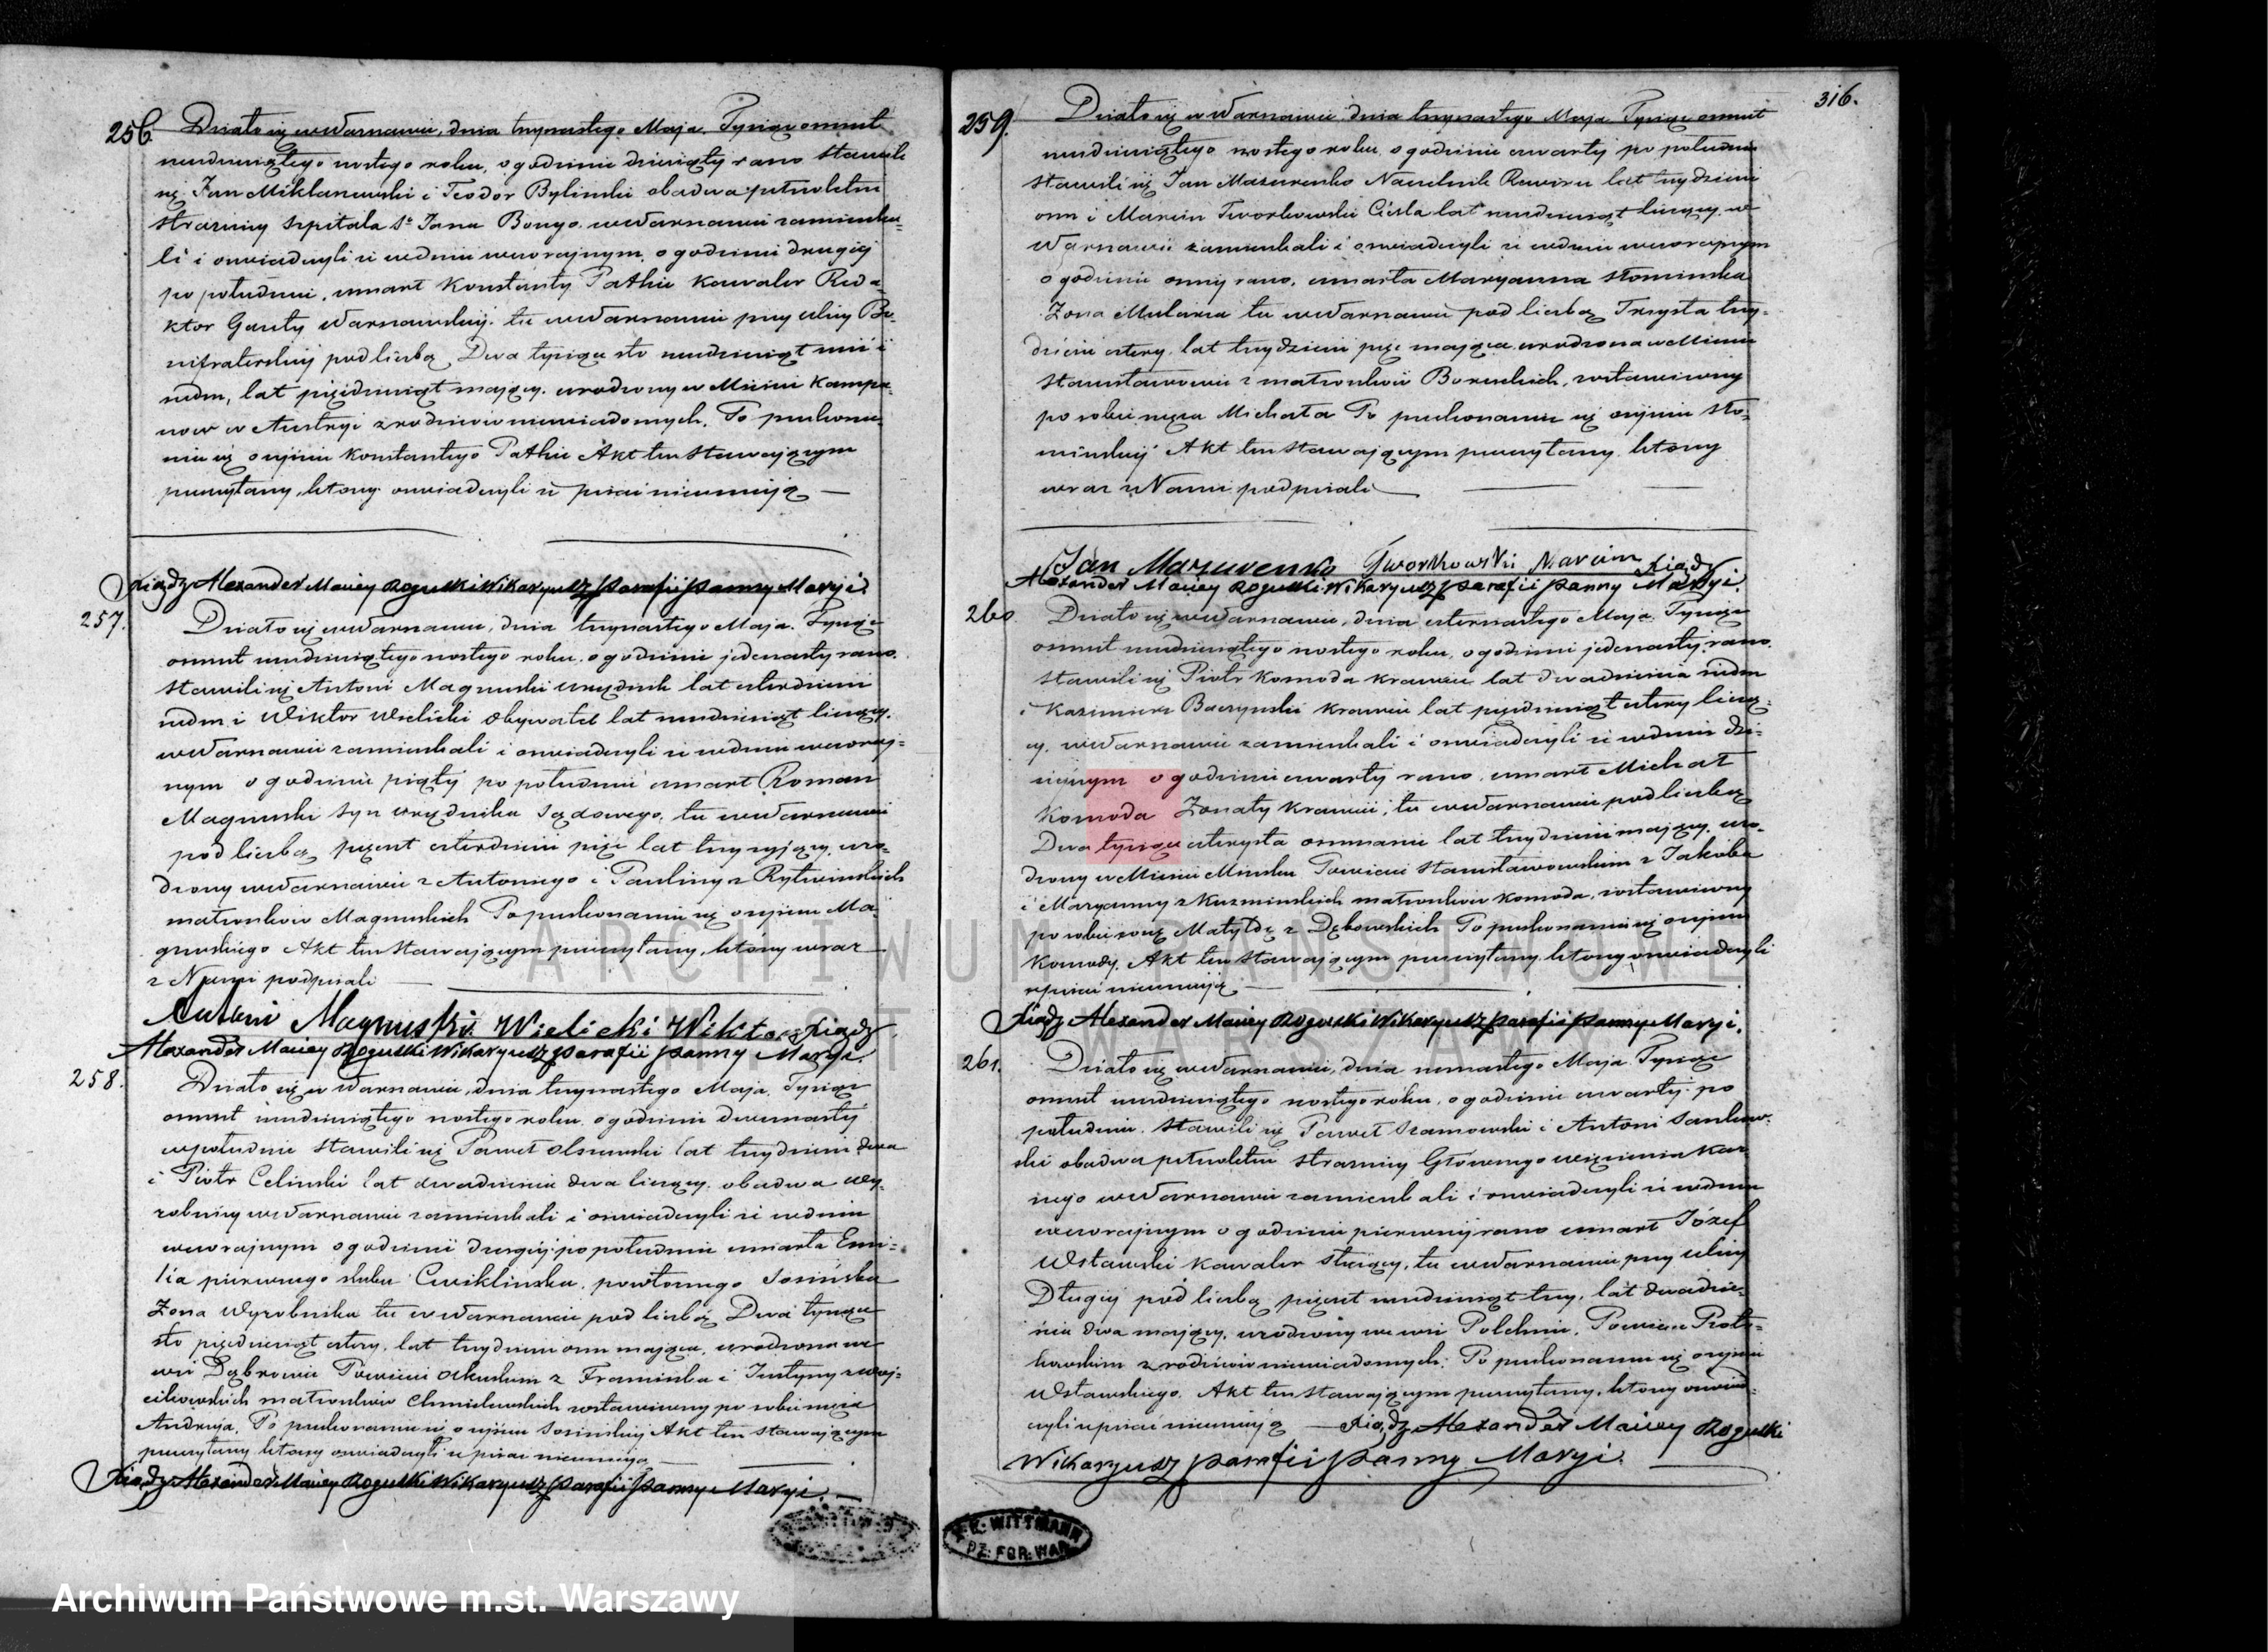 256. Działo się w Warszawie, dnia trzynastego Maja. Tysiąc ośmset
sześdziesiątego szóstego roku, o godzinie dziesiąty rano stawili
się Jan Mikłaszewski i Teodor Byliński obadwa pełnoletni
strażnicy szpitala Sgo Jana Bożego w Warszawie zamieszka=
li i oświadczyli iż w dniu wczorajszym o godzinie drugiéj
po południu, umarł Konstanty Pathie Kawaler Reda=
ktor Gazety Warszawskiéj, tu w Warszawie przy ulicy Bo=
nifraterskiej pod liczbą Dwa tysiące sto sześdziesiąt
siedm, lat pięćdziesiąt mający, urodzony w Mieście
w Austryi z rodziców niewiadomych. Po przekona=
niu się o zejściu Konstantego Pathie Akt ten stawającym
przeczytany, którzy oświadczyli iż pisać nieumieją
Xiądz Alexander Maciey Rogulki Wikaryusz Parafii Panny Maryi.
257. Działo się w Warszawie, dnia trzynastego Maja. Tysiąc
ośmset sześdziesiątego szóstego roku, o godzinie jedenasty rano
stawili się Antoni Magnuski urzędnik lat czterdzieści
siedm i Wiktor Wielicki Obywatel lat sześdziesiąt liczący,
w Warszawie zamieszkali i oświadczyli iż w dniu wczoraj=
szym o godzinie piąty po południu umarł Roman
Magnuski syn urzędnika Sądowego, tu w Warszawie
pod liczbą pięćset czterdzieści pięć lat trzy żyjący, uro=
dzony w Warszawie z Antoniego i Pauliny z
małżonków Magnuskich Po przekonaniu się o zejściu Ma=
gnuskiego Akt ten stawającym przeczytany, którzy wraz
z Nami podpisali
Antoni Magnuski Wielicki Wiktor Xiądz
Alexander Maciey Rogulki Wikaryusz Parafii Panny Maryi.
258. Działo się w Warszawie, dnia trzynastego Maja. Tysiąc
ośmset sześdziesiątego szóstego roku, o godzinie dwunasty
w południe stawili się Paweł Olszewski lat trzydzieści dwa
i Piotr Celiński lat dwadzieścia dwa liczący, obadwa wy=
robnicy w Warszawie zamieszkali i oświadczyli iż w dniu
wczorajszym o godzinie drugiéj po południu umarła Emi=
lia pierwszego ślubu Cwiklińska, powtórnego Sosińska
Żona Wyrobnika tu w Warszawie pod liczbą Dwa tysiące
sto pięćdziesiąt cztery, lat trzydzieści ośm mająca, urodzona we
wsi Dąbrowie Powiecie Olkuskim z Franciszka i Justyny
małżonków Chmielewskich zostawiwszy po sobie męża
Andrzeja. Po przekonaniu się o zejściu Sosińskiéj Akt ten stawającym
przeczytany którzy oświadczyli iż pisać nieumieją
Xiądz Alexander Maciey Rogulki Wikaryusz Parafii Panny Maryi.
316.
259. Działo się w Warszawie dnia trzynastego Maja Tysiąc ośmset
sześdziesiątego szóstego roku, o godzinie czwartéj po południu
stawili się Jan Mazurenko Naczelnik Rewiru lat trzydzieści
ośm i Marcin Tworkowski Cieśla lat sześdziesiąt liczący, w
Warszawie zamieszkali i oświadczyli iż w dniu wczorajszym
o godzinie ósméj rano, umarła Maryanna Słomińska
Żona Mularza tu w Warszawie pod liczbą Trzysta trzy=
dzieści cztery, lat trzydzieści pięć mająca urodzona w Mieście
Stanisławowie z małżonków, zostawiwszy
po sobie męża Michała Po przekonaniu się o zejściu Sło=
mińskiéj Akt ten stawającym przeczytany, którzy
wraz z Nami podpisali
Jan Mazurenko Tworkowski Marcin Xiądz
Alexander Maciey Rogulki Wikaryusz Parafii Panny Maryi.
260. Działo się w Warszawie, dnia czternastego Maja Tysiąc
ośmset sześdziesiątego szóstego roku, o godzinie jedenasty rano.
stawili się Piotr Komoda krawiec lat dwadzieścia siedm
i Kazimierz Baczyński krawiec lat pięćdziesiąt cztery liczą=
cy, w Warszawie zamieszkali i oświadczyli iż w dniu dzi=
siejszym o godzinie czwartéj rano, umarł Michał
Komoda Żonaty krawiec, tu w Warszawie pod liczbą
Dwa tysiące czterysta ośmnaście lat trzydzieści mający, uro=
dzony w Mieście Mińsku Powiecie Stanisławowskim z Jakóba
i Maryanny z Kuzmińskich małżonków Komoda, zostawiwszy
po sobie żonę Matyldę z Dębowskich Po przekonaniu się o zejściu
Komody, Akt ten stawającym przeczytany którzy oświadczyli
iż pisać nieumieją
Xiądz Alexander Maciey Rogulki Wikaryusz Parafii Panny Maryi.
261. Działo się w Warszawie, dnia Maja Tysiąc
ośmset sześdziesiątego szóstego roku, o godzinie czwartéj po
południu, stawili się Paweł Szamowski i Antoni Sankow=
ski obadwa pełnoletni strażnicy Głównego więzienia Kar
nego w Warszawie zamieszkali i oświadczyli iż w dniu
wczorajszym o godzinie pierwszéj rano umarł Józef
Wstawski kawaler służący, tu w Warszawie przy ulicy
Długiéj pod liczbą pięćset sześdziesiąt trzy, lat dwadzie=
ścia dwa mający, urodzony we wsi Polchnie, Powiecie Piotr=
kowskim z rodziców niewiadomych. Po przekonaniu się o zejściu
Wstawskiego, Akt ten stawającym przeczytany, którzy oświad=
czyli iż pisać nieumieją Xiądz Alexander Maciey Rogulki
Wikaryusz Parafii Panny Maryi.
WITTMANN
PZ. FOR. WAR.
ARCHIWUM PAŃSTWOWE
M. ST. WARSZAWY
Archiwum Państwowe m.st. Warszawy